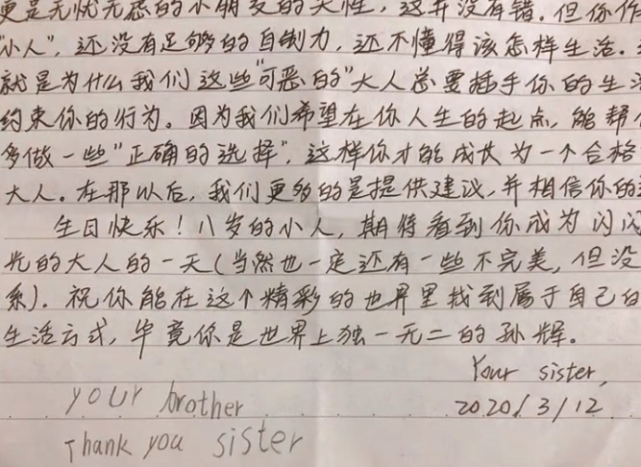 更是无忧无虑的小朋友的天性，这并没有错。但你作
“小人”，还没有足够的自制力，还不懂得该怎样生活。
就是为什么我们这些“可恶的”大人总要插手你的生活
约束你的行为。因为我们希望在你人生的起点，能帮你
多做一些“正确的选择”，这样你才能成长为一个合格
大人。在那以后，我们更多的是提供建议，并相信你的
生日快乐！八岁的小人，期待看到你成为闪闪
光的大人的一天（当然也一定还有一些不完美，但没
系）。祝你能在这个精彩的世界里找到属于自己的
生活方式，毕竟你是世界上独一无二的孙辉。
Your sister,
2020/3/12
your brother
Thank you sister